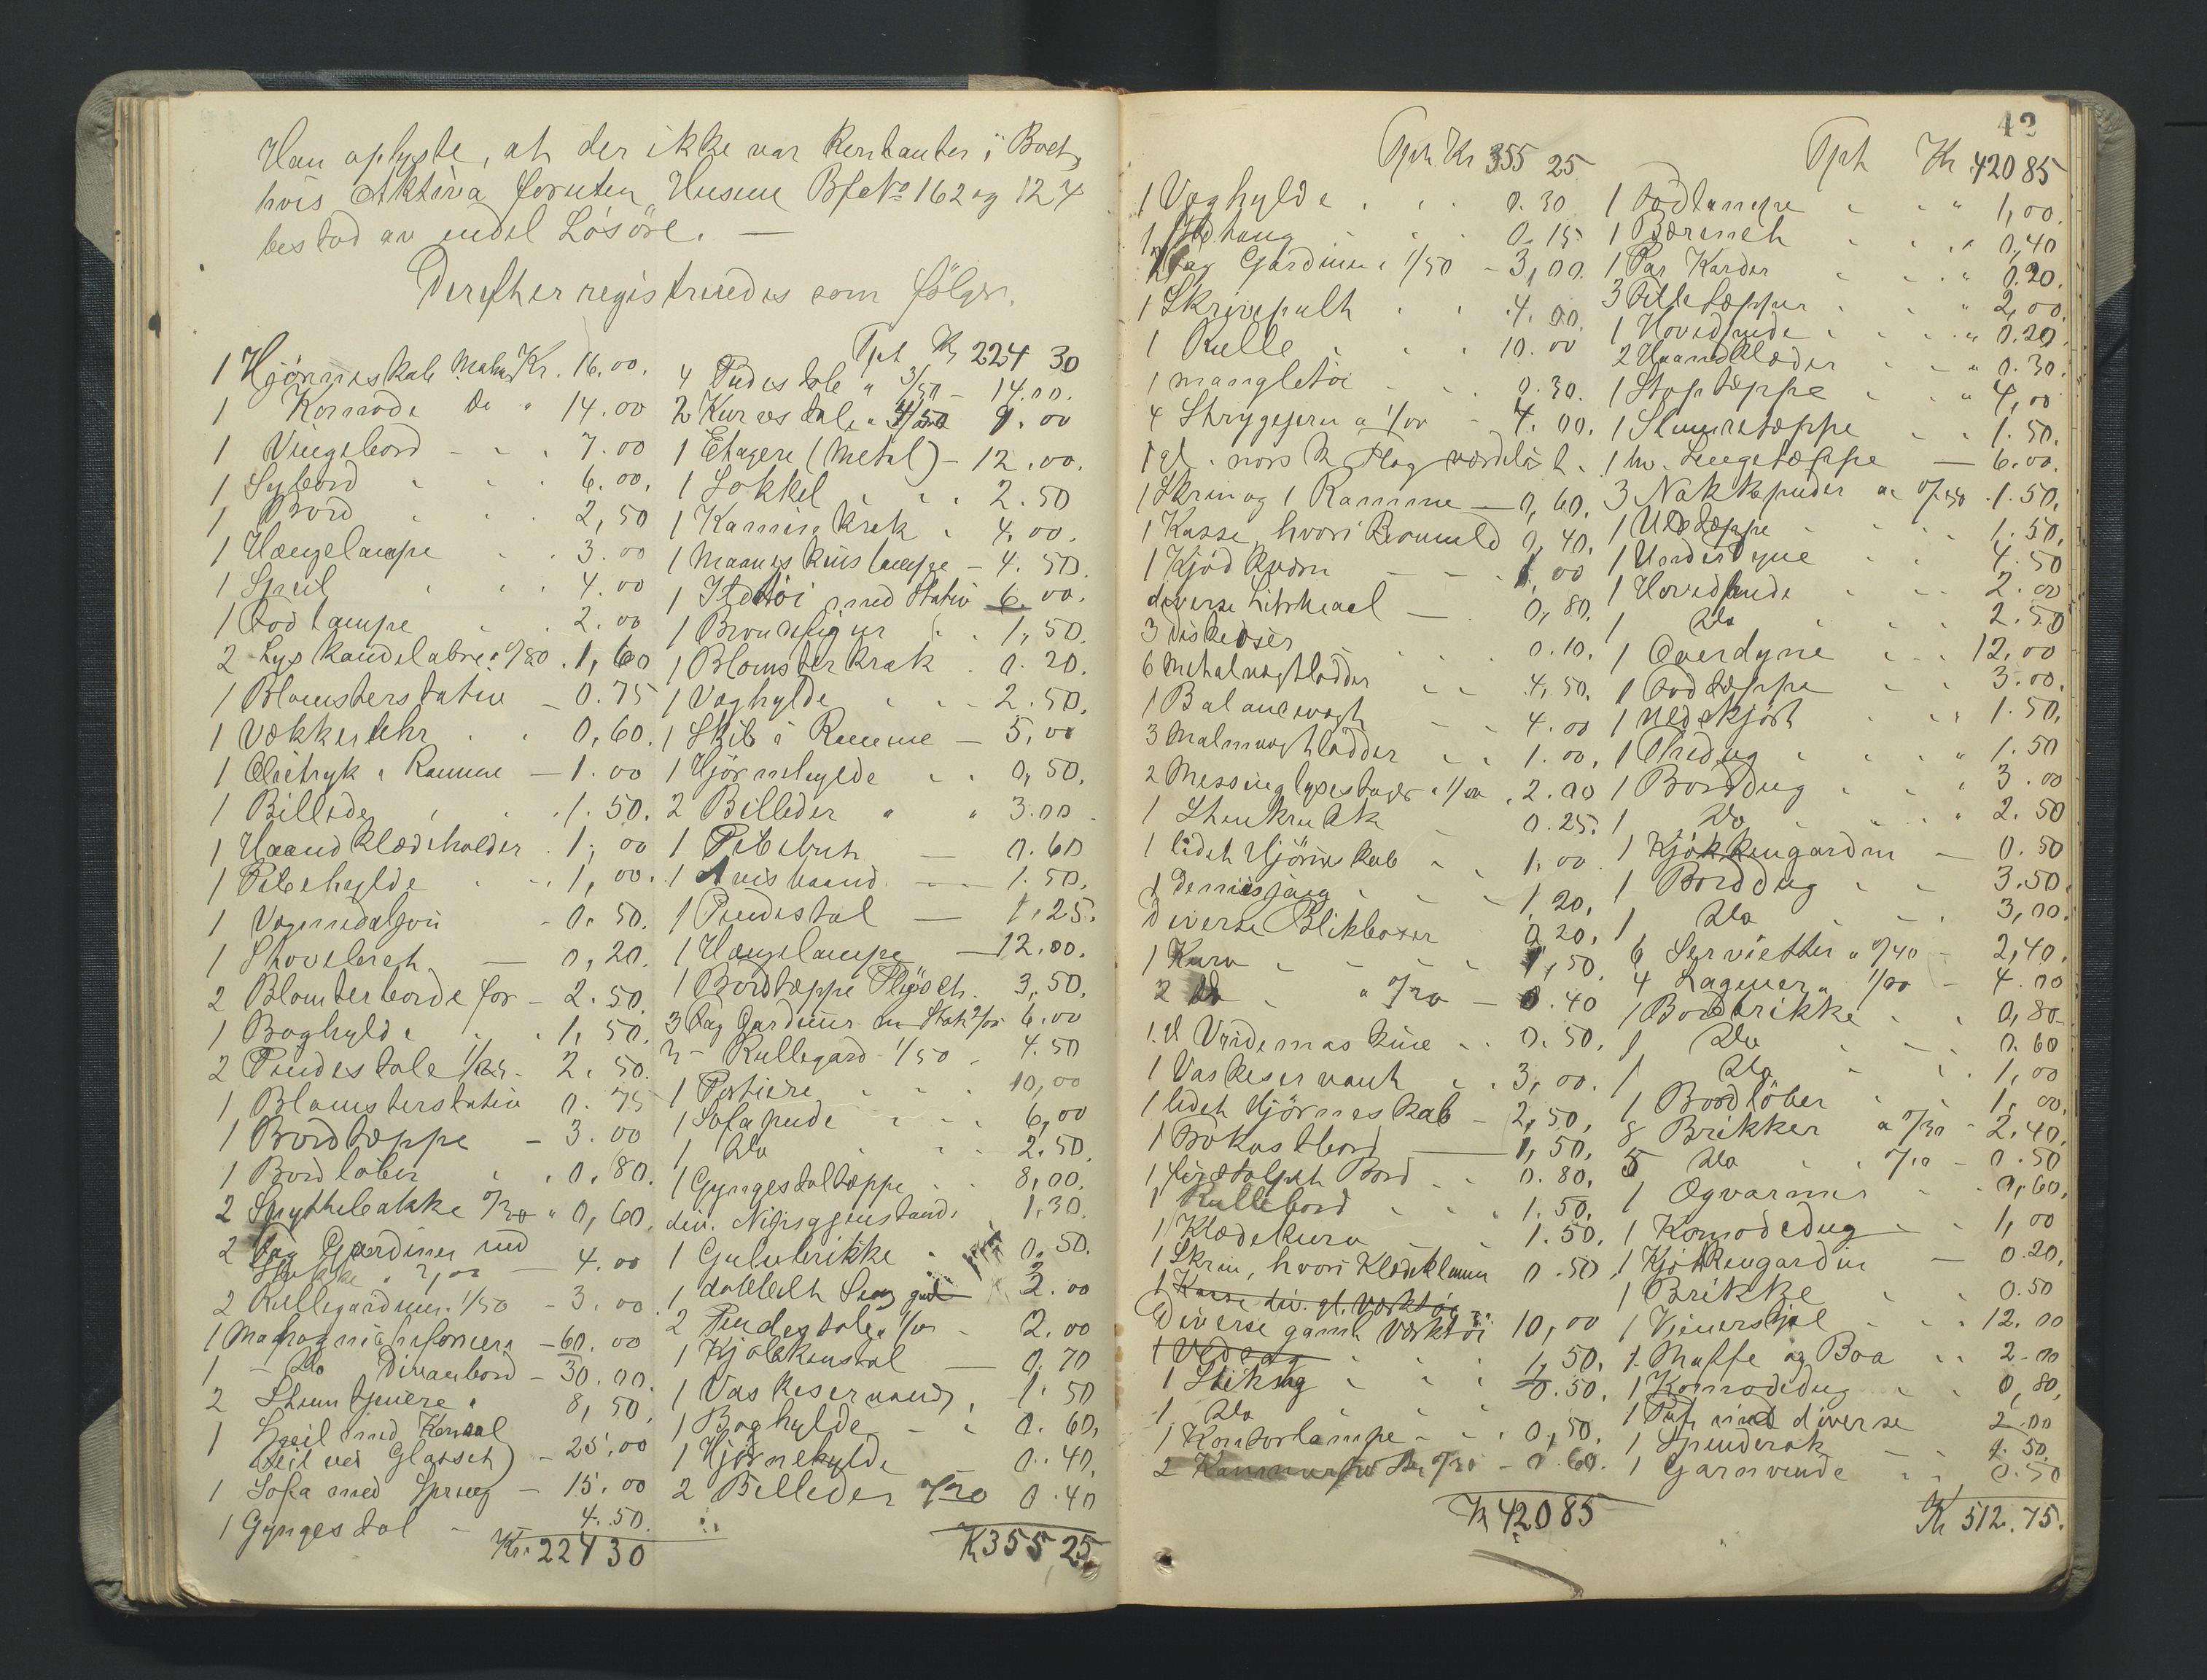 Han oplyste, at der ikke var Kontanter i Boet,
hvis Aktiva foruten Husene Bfc No 162 og 124
bestod av endel Lösöre. —
Derefter registreredes som fölger.
1 Hjörneskab Mahg Kr. 16.00.
1 Komode Do " 14.00
1 Vingebord - - 7.00
1 Sybord 6.00.
1 Bord 2,50
1 Hængelampe 3.00
1 Speil 4.00
1 Fodlampe 2.00
2 Lyskandelabre a 0/80. 1,60
1 Blomsterstativ - 0.75
1 Vækkeruhr 0,60.
1 Olietryk i Ramme - 1.00
1 Billede 1.50.
1 Haandklædeholder 1,00
1 Pibehylde 1,00.
1 0.50.
1 Skovlbret — 0,20.
2 Blomsterborde for - 2.50.
1 Boghylde 1,50.
2 Pindestole 1/25 - 2.50.
1 Blomsterstativ 0.75
1 Bordtæppe - 3.00
1 Bordlöber 0.80.
2 Spyttebakke 0/30 " 0,60.
2 Fag Gardiner med
Stokke a 2,00 — 4.00
2 Rullegardiner a 1/50 - 3.00
1 Mahogni - 60.00
1 - Do Divanbord - 30.00.
2 Stumtjenere 8,50.
1 Speil med Konsol
(feil ved Glasset) - 25.00
1 Sofa med Spring - 15.00
1 Gyngestol - 4.50.
Kr. 224 30
Tpt Kr 224 30
4 Pindestole a 3/50 - 14.00.
2 Kurvestole a 4/50 9.00
1 Etagere (Metal) - 12.00.
1 Sokkel 2.50
1 Kamin krak 4,00.
1 Maaneskinslampe - 4.50.
1 Ildtöi med Stativ 6.00.
1 Broncefigur 1,50.
1 Blomsterkrak 0.20.
1 Voghylde 2.50.
1 Skib i Ramme - 5,00
1 Hjörnehylde 0,50.
2 Billeder " " 3.00.
1 Pibebret — 0.60
1 Avis — 1.50.
1 Piedestal — 1,25.
1 Hængelampe — 12.00.
1 Bordtæppe Plysch. 3,50.
3 Fag Gardiner m Stok 2/00 6.00
3 - Rullegard - 1/50 - 4.50
1 Portiere 10,00
1 Sofapude 6,00
1 Do 2.50.
1 Gyngestoltæppe 8,00.
div. Nipsgjenstande 1,30.
1 Gulvbrikke 0,50.
1 dobbelt Seng 2.00
2 Pindestole a 1/00 - 2.00
1 Kjökkenstol — 0.70
1 Vaskeservant 1.50
1 Boghylde - 0.60.
1 Hjörnehylde 0.40.
2 Billeder 0/20 0.40
K 355,25
42
Tpt Kr 355 25
1 Voghylde 0.30
1 0.15
2 Fag Gardiner a 1/50 - 3,00.
1 Skrivepult 4.00.
1 Rulle 10.00
1 mangletöi 0.30.
4 Strygejern a 1/00 - 4.00.
1 gl. norsk Flag værdilöst.
1 Skrin og 1 Ramme - 0,60.
1 Kasse, hvori Bomuld 0,40.
1 Kjödkværn 1,00
diverse — 0,80.
3 0.10.
6 Metalvegtlodder 4,50.
1 Balancevegt 4.00
3 Malmvegtlodder 1.00.
2 Messinglysestager a 1/00. 2.00
1 Stenkrukke 0.25.
1 lidet Hjörneskab 1.00
1 Demisjang 1,20.
diverse Blikboxer 0,20.
1 Kurv 1,50.
2 Do " 0/20 - 0.40
1 gl Vridemaskine 0.50.
1 Vaskeservant 3,00.
1 lidet Hjörneskab - 2,50,
1 Bord — 1,50,
1 Bord 0.80.
1 Rullebord 1.50.
1 Klædekurv 1.50.
1 Skrin, hvori Klædeklemm 0.50.
1 Kasse div. gl. Værktöi
Diverse gamle Værktöi 10,00
1 Vedsag 1,50.
1 Stiksag 0.50.
1 Do
1 Kontorlampe 0,50.
2 0/30 - 0.60.
Kr 420 85
Tpt Kr 420 85
1 Fodlampe 1,00.
1 Bærenet 0,40
1 Par Karder 0.20.
3 Filletæpper 2,00.
1 Hovedpude 0.20.
2 Haandklæder 0.30.
1 Stoptæppe 4,00
1 1.50.
1 hv. Sengetæppe — 6.00.
3 Nakkepuder a 0/50. 1.50.
1 Uldtæppe 1.50.
1 Underdyne 4.50
1 Hovedpude 2.00
1 Do 2.50
1 Overdyne 12,00
1 Fodtæppe 3.00.
1 Nedskjört 1.50.
1 1.50
1 Borddug 3.00
1 Do 2.50
1 Kjökkengardin — 0.50
1 Borddug 3.50.
1 Do 3,00.
6 Servietter a 0/40 - 2,40.
4 Lagner a 1/00 - 4.00
1 Bordbrikke 0,80.
1 Do 0.60
1 Do 1,00
1 Bordlöber 1,00.
8 Brikker a 0/30 - 2.40.
5 Do 0/10 - 0.50
1 Ægvarmer 0,60.
1 Komodedug 1,00
1 Kjökkengardin — 0.20.
1 Brikke 0.50
1 Vienersjal 12.00
1 Muffe og Boa 2.00
1 Komodedug 0,80.
1 Puf med diverse 2.00
1 Spinderok 4.50.
1 Garnvinde 0.50
Kr 512.75.